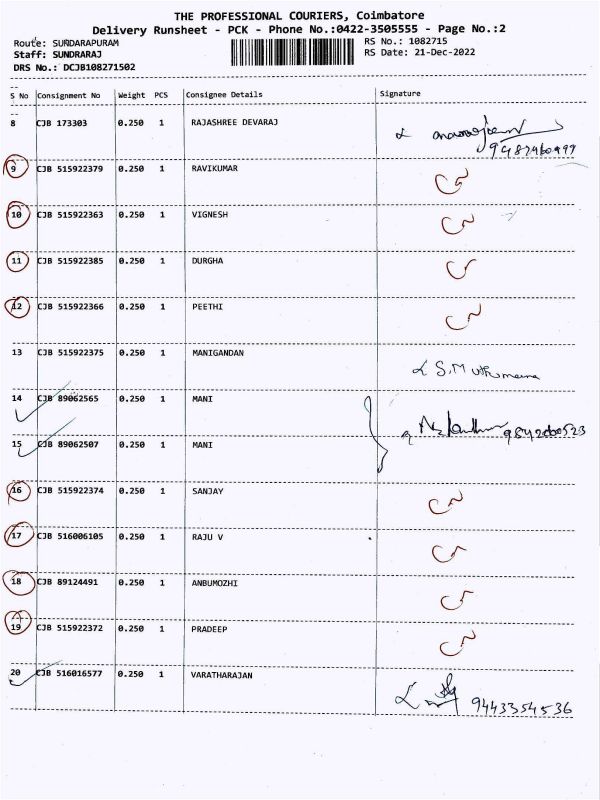 THE PROFESSIONAL COURIERS, Coimbatore
Delivery Runsheet - PCK - Phone No.:0422-3505555 - Page No.:2
Route: SUNDARAPURAM
RS No.: 1082715
Staff: SUNDRARAJ
RS Date: 21-Dec-2022
DRS No.: DCJB108271502
S No Consignment No Weight PCS Consignee Details Signature
8 CJB 173303 0.250 1 RAJASHREE DEVARAJ
9 CJB 515922379 0.250 1 RAVIKUMAR
10 CJB 515922363 0.250 1 VIGNESH
11 CJB 515922385 0.250 1 DURGHA
12 CJB 515922366 0.250 1 PEETHI
13 CJB 515922375 0.250 1 MANIGANDAN
14 CJB 89062565 0.250 1 MANI
9842000523
15 CJB 89062507 0.250 1 MANI
16 CJB 515922374 0.250 1 SANJAY
17 CJB 516006105 0.250 1 RAJU V
18 CJB 89124491 0.250 1 ANBUMOZHI
19 CJB 515922372 0.250 1 PRADEEP
20 CJB 516016577 0.250 1 VARATHARAJAN
9443354536